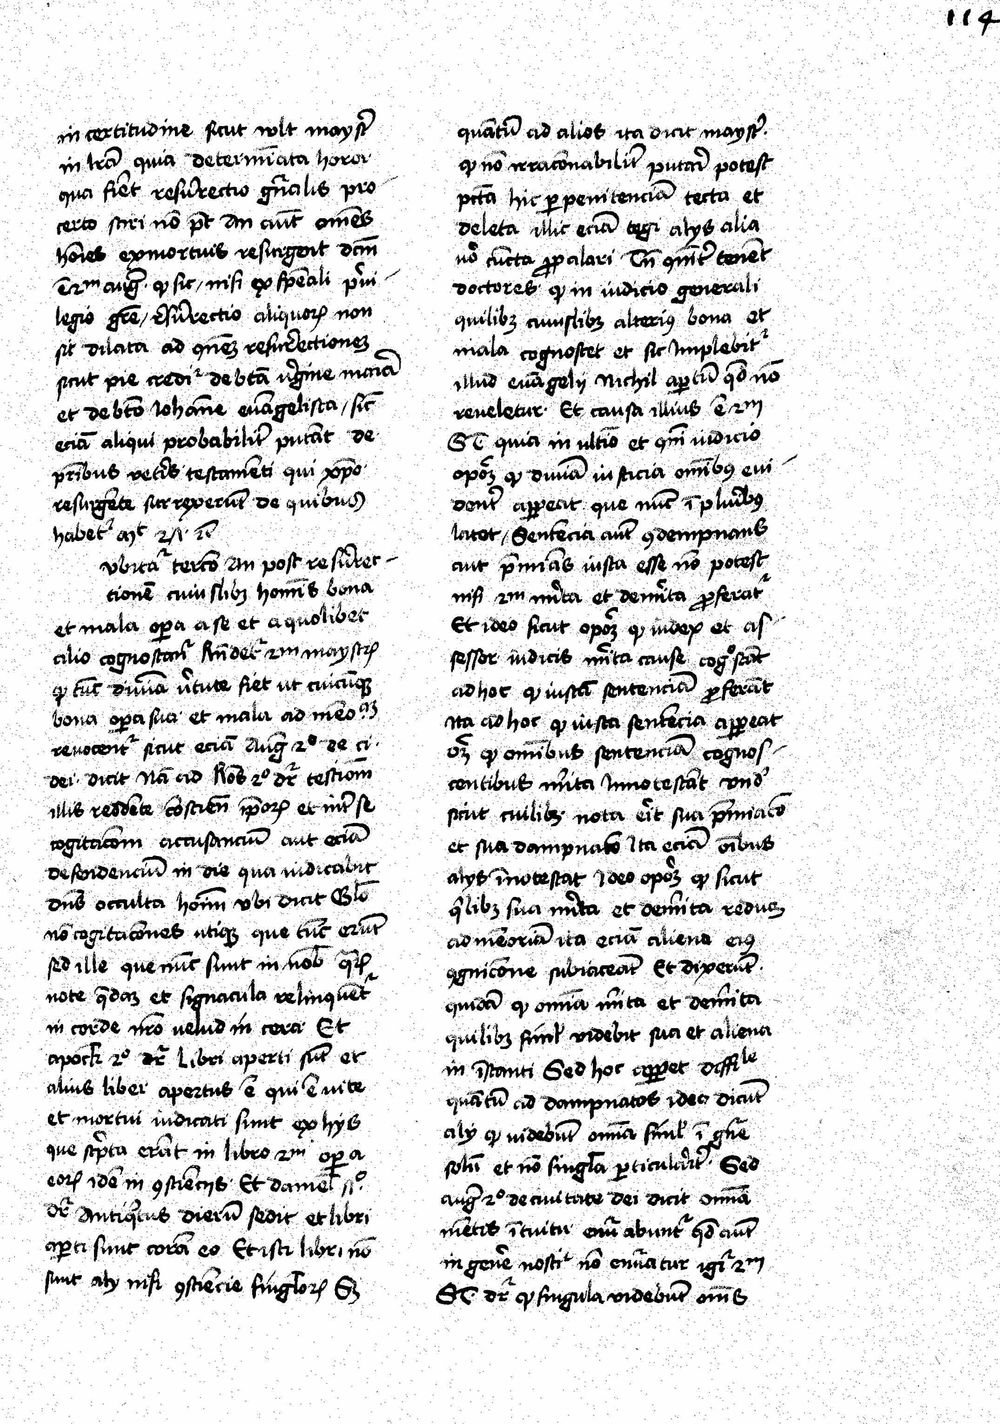 114
in certitudine sicut wlt mayst̄
in lr̄a quia determīata hora
qua fiet resur̄ectio gn̄alis pro
certo sciri nō pōt An aūt om̄es
hōies ex mortuis resurgent dc̄m
auḡ ꝙ sic / nisi ex sp̄eali p̄ui
legio gr̄e / resur̄ectio aliquoꝝ non
sit dilata ad resurrectionem
sicut pie credit̄ de bt̄a v̄gine maria
et de bt̄o Iohan̄e ewāgelista / sic̄
eciā aliqui probabilit̄ putāt de
pr̄ibus vet̄is testamēti qui xp̄o
resurgēte surrexerūt de quibus
habet̄
vbitat̄ tercō An post resur̄rec
tionē cuiuslibꝫ homīs bona
et mala oꝑa a se et a quolibet
alio cognoscant̄ Rn̄det̄ 2m maystrꝝ
ꝙ tūc diuīa v̄tute fiet ut cuicūqꝫ
bona oꝑa sua et mala ad mēoꝛiaꝫ
reuocent̄ sicut eciā Auḡ 2º de ci
dei dicit Nā ad Ro͞s 2º dr̄ testiom̄
illis reddente cōscien̄ ip̄oꝝ et int̄ se
cogitacōm accusanciū aut eciā
defendenciū in die qua iudicabit
dn̄s occulta hoīm vbi dicit Glō
nō cogitacōnes utiqꝫ que tūc erūt
sed ille que nūc sunt in nob̄
note q̄dam et signacula relinquēt̄
in corde nr̄o uelud in cera Et
apock̄ 2º dr̄ Libri aperti sūt et
alius liber apertus ē qui ē uite
et mortui iudicati sunt ex hys
que sc̄pta erāt in libro 2m oꝑa
eoꝝ idē in ꝯsciencijs Et daniel̄
dr̄ Antiq̄us dierū sedit et libri
aꝑti sunt corā eo Et isti libri nō
sunt aly nisi ꝯsciencie singl̄oꝝ Sꝫ
quātū ad alios ita dicit mayst̄
ꝙ nō irracōnabilit̄ putari potest
pctā hic ꝑ penitenciā tecta et
deleta illic eciā tegi alys alia
uō cūcta ꝓpalari Tn̄ tenēt
doctores ꝙ in iudicio generali
quilibꝫ cuiuslibꝫ alterius bona et
mala cognoscet et sic Implebit̄
illud ewāgelij Nichil aꝑtū qd̄ nō
reueletur Et causa illius ē 2m
ST quia in ultīo et iudicio
opoꝫ ꝙ diuīa iusticia omībꝯ eui
dent̄ appeat que nūc ī pluribꝯ
latet / Sentencia aūt ꝯdempnans
aut p̄mians iusta esse nō potest
nisi 2m mr̄ita et demr̄ita ꝓferat̄
Et ideo sicut opoꝫ ꝙ iudex et as
sessor iudicis mr̄ita cause cogºscāt
ad hoc ꝙ iustā sentenciā ꝓferāt
Ita ad hoc ꝙ iusta sentencia appeat
oꝫ ꝙ omībus sentenciā cognos
centibus mr̄ita Innotescāt vnd̄
sicut cuilibꝫ nota er̄it sua p̄miacō
et sua dampnacō Ita eciā oībus
alys īnotescat Ideo opoꝫ ꝙ sicut
q̄libꝫ sua mr̄ita et demr̄ita reducꝫ
ad mēoriā ita eciā aliena eiꝯ
ꝯgnicōne subiaceāt Et dixerūt
quidā ꝙ omīa mr̄ita et demr̄ita
quilibꝫ simul̄ videbit sua et aliena
in īstanti Sed hoc appet diffile
quātū ad dampnatos ideo dicūt
aly ꝙ videbūt omīa simul̄ ī gn̄e
solū et nō singl̄a ꝑticulārit̄ Sed
auḡ 2º de ciuitate dei dicit omīa
mētis ītuitu enūabunt̄ qd̄ aūt
in gene̅ noscit̄ nō enūatur igr̄ 2m
ST dr̄ ꝙ singula videbūt om̄s